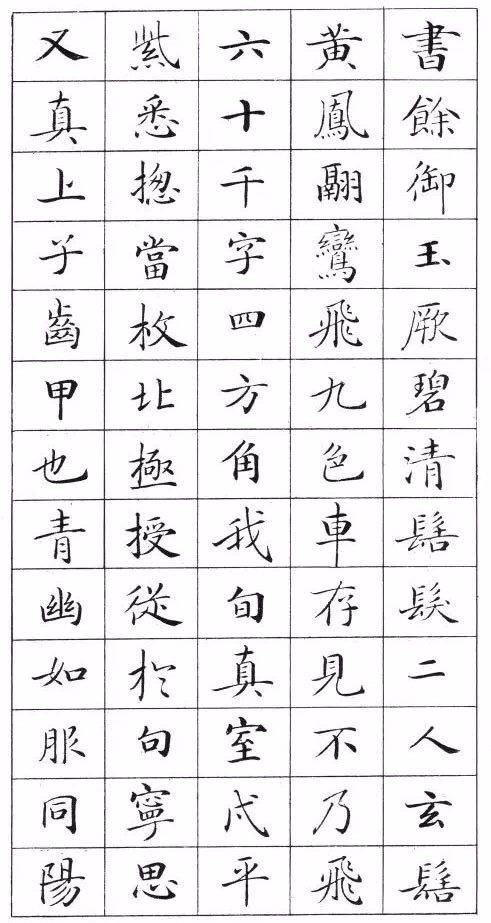 書餘御玉厥碧清髻髮二人玄髻
黃鳳翮鸞飛九色車存見不乃飛
六十千字四方角我旬真室平
紫悉揔當枚北極授從於句寧思
又真上子齒甲也青幽如服同陽